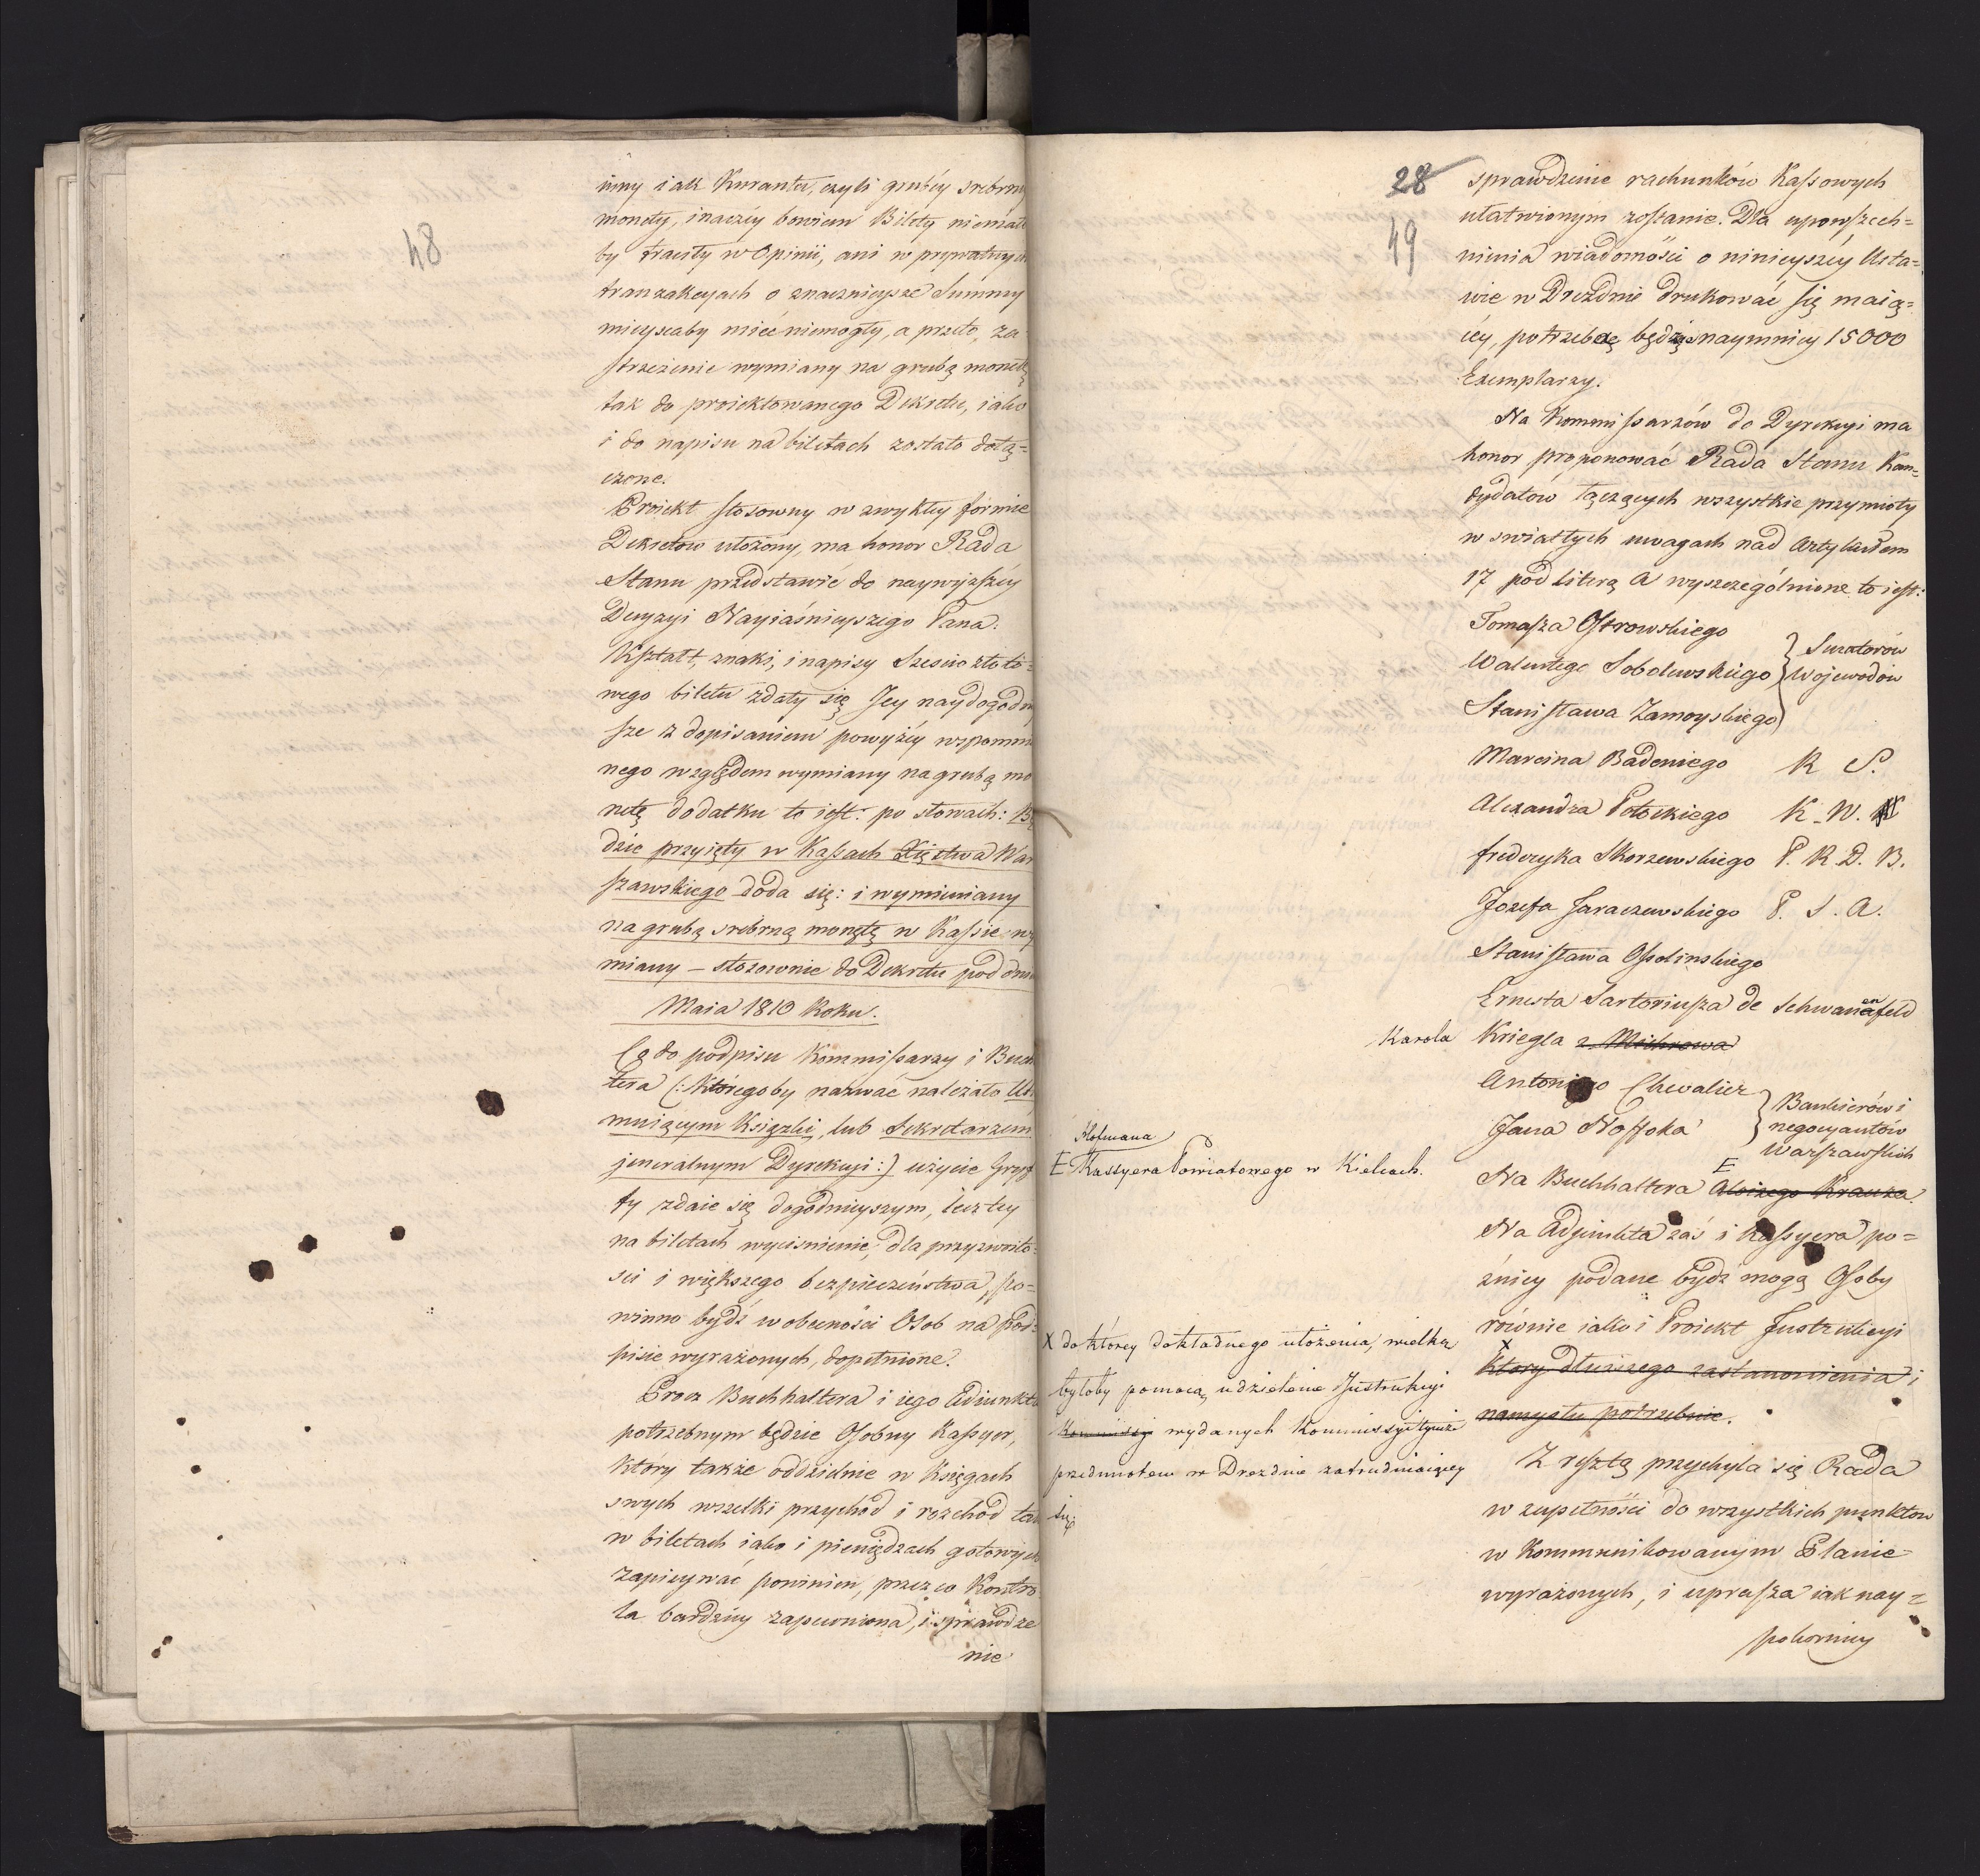 48
inny iak Kurantu, czyli grubéy srebrny
monety, inaczéy bowiem Bilety niemiał
by traciły w Opinii, ani w prywatnych
tranzakcyach o znacznieysze Summy
mieyscaby mieć niemogły, a przeto, za
strzeżenie wymiany na grubą monetę
tak do proiektowanego Dekretu, iako
i do napisu na biletach zostało dołą=
czone.
Proiekt stosowny w zwykłey formie
Dekretow ułożony, ma honor Rada
Stanu przedstawić do naywyższéy
Decyzyi Nayiaśnieyszego Pana.
Kształt, znaki, i napisy Szescio złoto=
wego biletu zdały się Jey naydogodn
sze z dopisaniem powyżéy wspomni
nego względem wymiany na grubą mo
netę dodatku to iest: po słowach: Bę
dzie przyięty w Kassach Xięstwa War
szawskiego doda się: i wymieniany
na grubą srebrną monetę w Kassie wy
miany – stosownie do Dekretu pod dniem
Maia 1810 Roku.
Co do podpisu Kommissarzy i Buch
tera (: któregoby nazwać należało
mniącym Książki, lub Sekretarzem
jeneralnym Dyrekcyi :) użycie Gryf
ły zdaie się dogodnieyszym, lecz tey
na biletach wyciśnienie, dla przyzwoito=
sci i większego bezpieczeństwa, po=
winno bydź w obecności Osob na pod=
pisie wyrażonych, dopełnione.
Procz Buchhaltera i iego Adiunkta
potrzebnym będzie Osobny Kassyer,
który także oddzielnie w Księgach
swych wszelki przychód i rozchod tak
w biletach iako i pieniędzach gotowych
zapisywać powinien, przez co Kontro
la bardziéy zapewniona, i sprawdze
nie
28
49
sprawdzenie rachunków Kassowych
ułatwionym zostanie. Dla upowszech=
nienia wiadomości o ninieyszéy Usta=
wie w Dreźdnie drukować się maią=
céy, potrzeba będzie naymniey 15000
Exemplarzy.
Na Kommissarzów do Dyrekcyi ma
honor proponować Rada Stanu Kan=
dydatów łączących wszystkie przymioty
w swiatłych uwagach nad Artykułem
17 pod literą A wyszczególnione to iest:
Tomasza Ostrowskiego
Walentego Sobolewskiego
Stanisława Zamoyskiego
Senatorów
Wojewodów
Marcina Badeniego R S.
Alexandra Potockiego K. W.
Frederyka Skorzewskiego P. R. D. B.
Józefa Jaraczewskiego P. S. A.
Stanisława Ossolinskiego
Ernesta Sartoriusza de Schwanenfeld
Karola Kriegla z Michrowa
Antoniego Chevalier
Jana Noffoka
Bankierów i
negocyantów
Warszawskich
Na Buchhaltera Aloizego Krauza
Hofmana
E Kassyera Powiatowego w Kielcach.
Na Adjunkta zaś i Kassyera po=
źniey podane bydź mogą Osoby
równie iako i Proiekt Instrukcyi
który dłuższego zastanowienia i
namysłu potrzebuie.
X do którey dokładnego ułożenia, wielką
byłoby pomocą, udzielenie Instrukcyi
wydanych Kommissyi tymże
przedmiotem w Dreznie zatrudniaiącey
się.
Z resztą przychyla się Rada
w zupełności do wszystkich punktow
w Kommunikowanym Planie
wyrażonych, i uprasza iak nay=
pokorniey